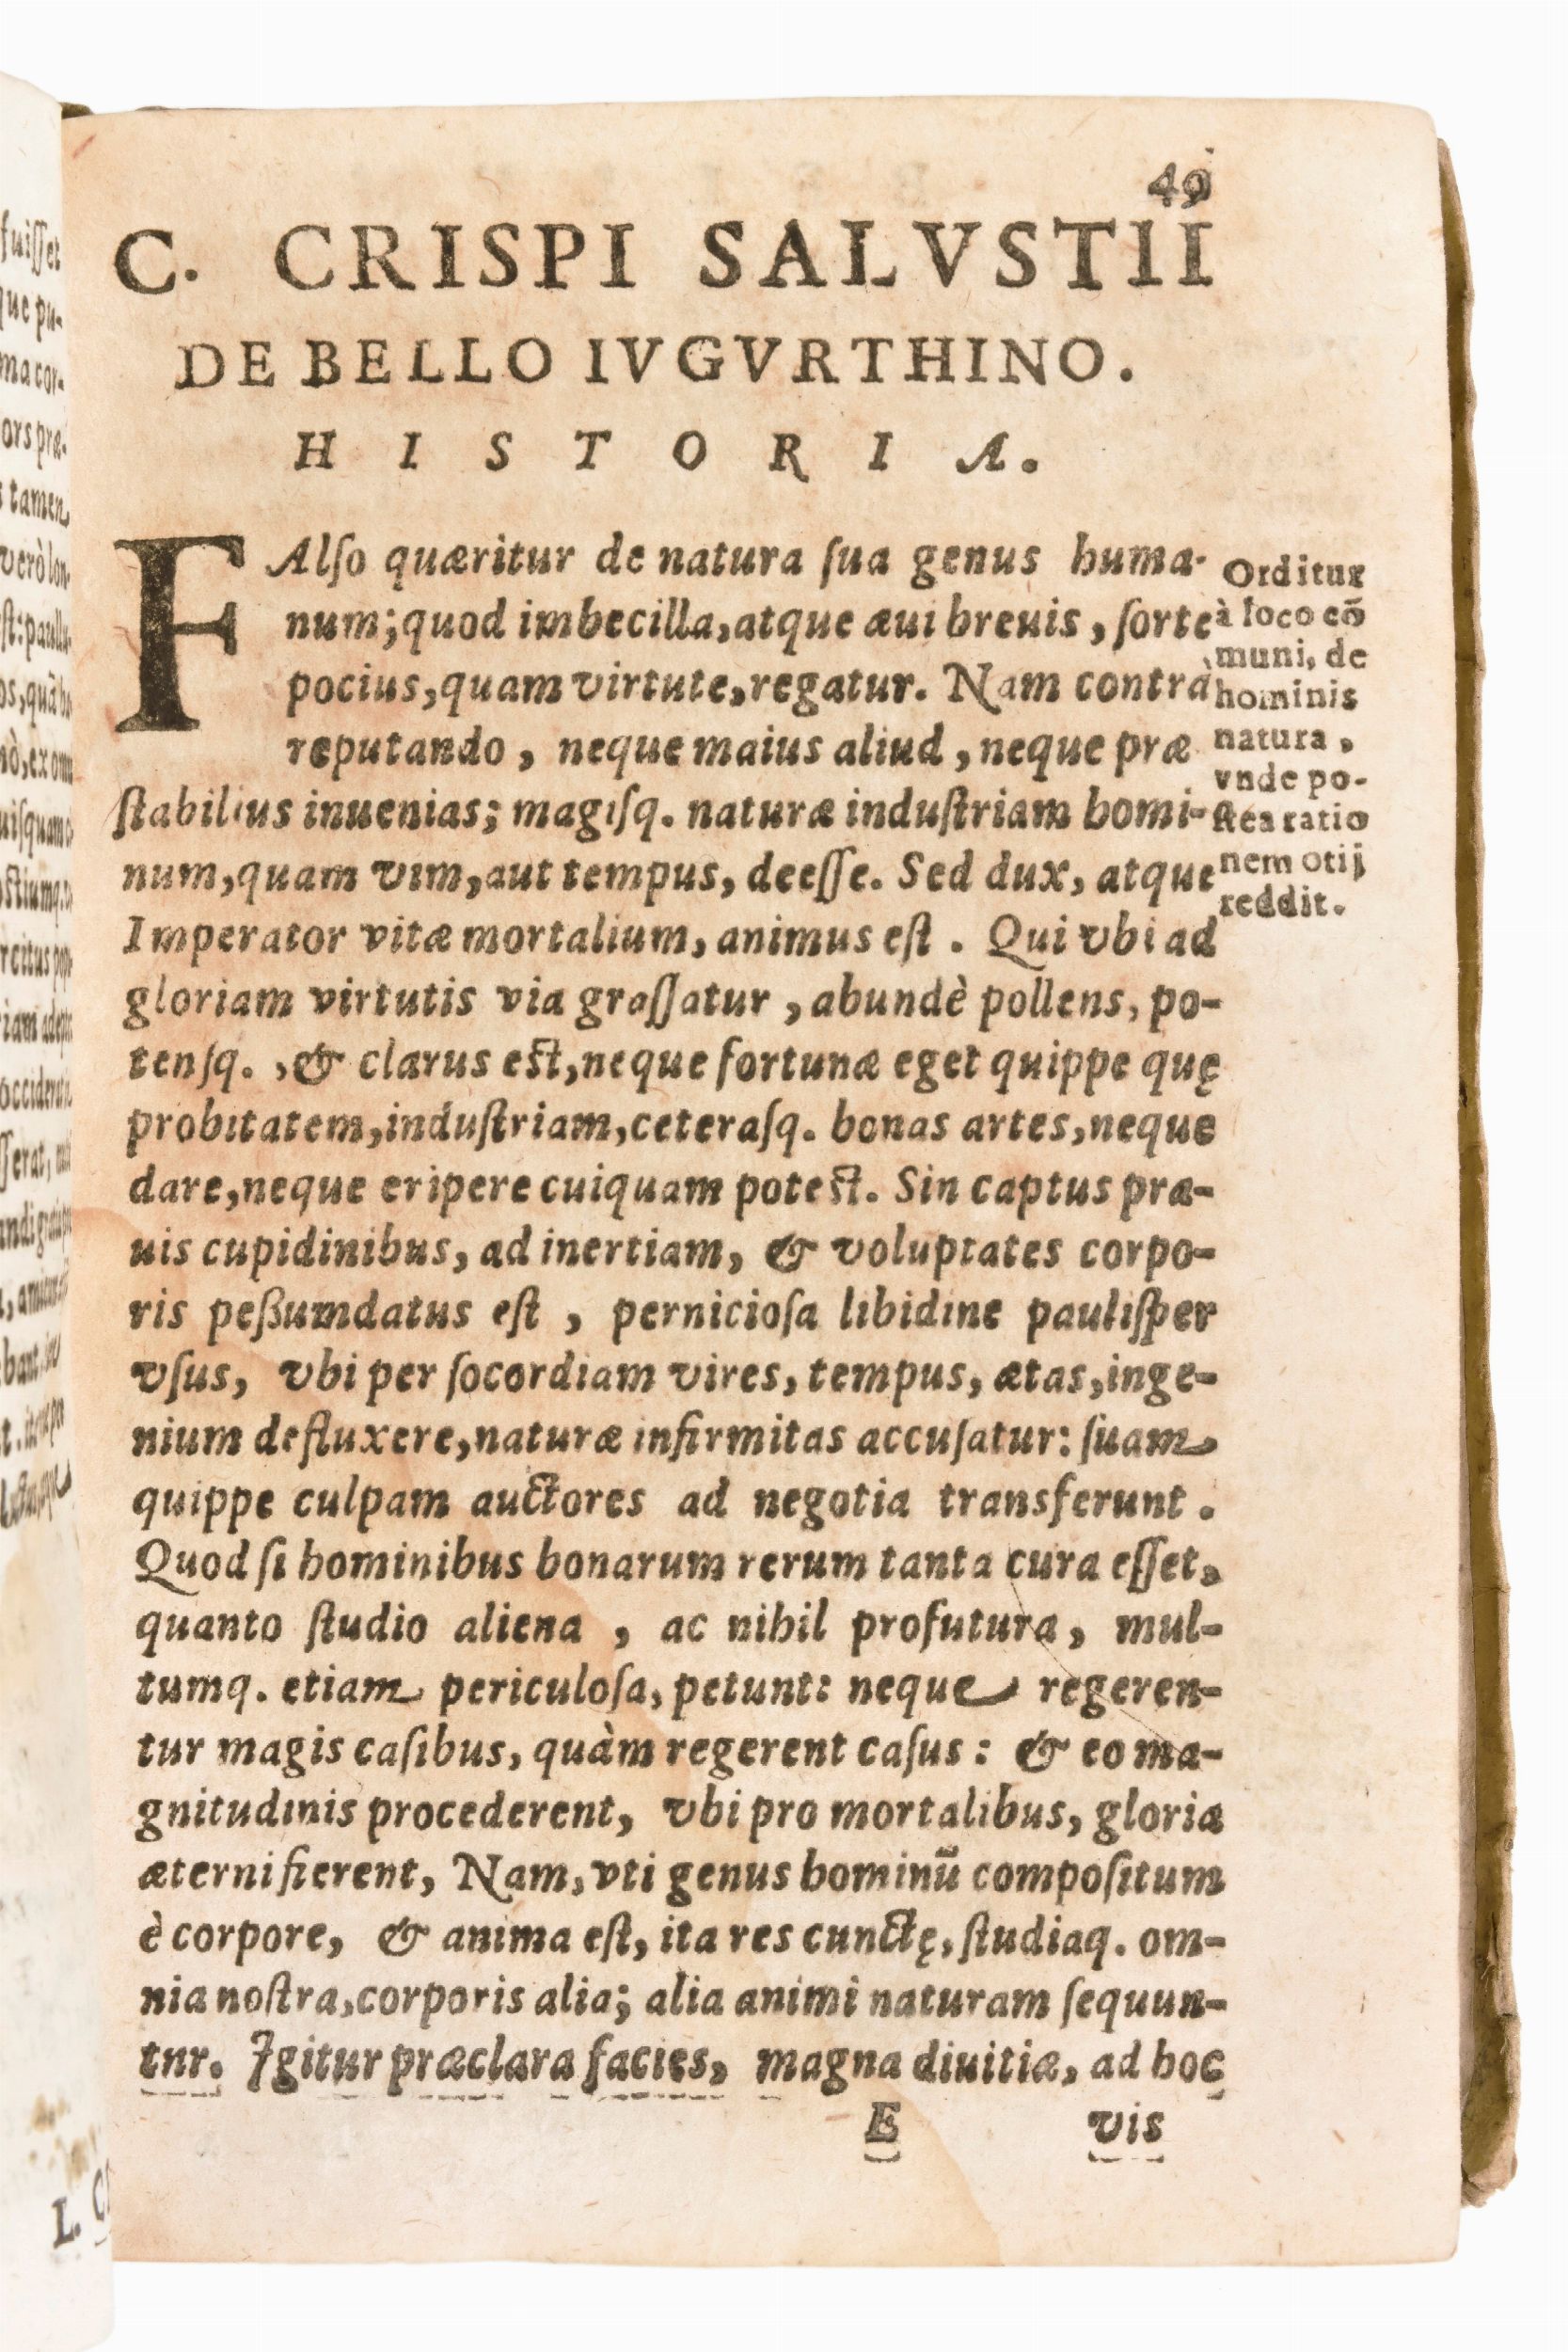 49
C. CRISPI SALVSTII
DE BELLO IVGVRTHINO.
HISTORIA.
FAlſo quæritur de natura ſua genus huma-
num; quod imbecilla, atque æui breuis, ſorte
pocius, quam virtute, regatur. Nam contrà
reputando, neque maius aliud, neque præ
ſtabilius inuenias; magiſq. naturæ induſtriam homi-
num, quam vim, aut tempus, deeſſe. Sed dux, atque
Imperator vitæ mortalium, animus eſt. Qui vbi ad
gloriam virtutis via graſſatur, abundè pollens, po-
tenſq., & clarus eſt, neque fortunæ eget quippe quę
probitatem, induſtriam, ceteraſq. bonas artes, neque
dare, neque eripere cuiquam poteſt. Sin captus præ-
uis cupidinibus, ad inertiam, & voluptates corpo-
ris peßumdatus eſt, pernicioſa libidine pauliſper
vſus, vbi per ſocordiam vires, tempus, ætas, inge-
nium defluxere, naturæ infirmitas accuſatur: ſuam
quippe culpam auctores ad negotia transferunt.
Quod ſi hominibus bonarum rerum tanta cura eſſet,
quanto ſtudio aliena, ac nihil profutura, mul-
tumq. etiam periculoſa, petunt: neque regeren-
tur magis caſibus, quàm regerent caſus: & eo ma-
gnitudinis procederent, vbi pro mortalibus, gloria
æterni fierent, Nam, vti genus hominū compoſitum
è corpore, & anima eſt, ita res cunctę, ſtudiaq. om-
nia noſtra, corporis alia; alia animi naturam ſequun-
tnr. Igitur præclara facies, magna diuitiæ, ad hoc
E vis
Orditur
à loco cō
muni, de
hominis
natura,
vnde po-
ſtea ratio
nem otij
reddit.
fuiſſet
que pu-
ma cor-
ors præ-
tamen
verò lon-
L.